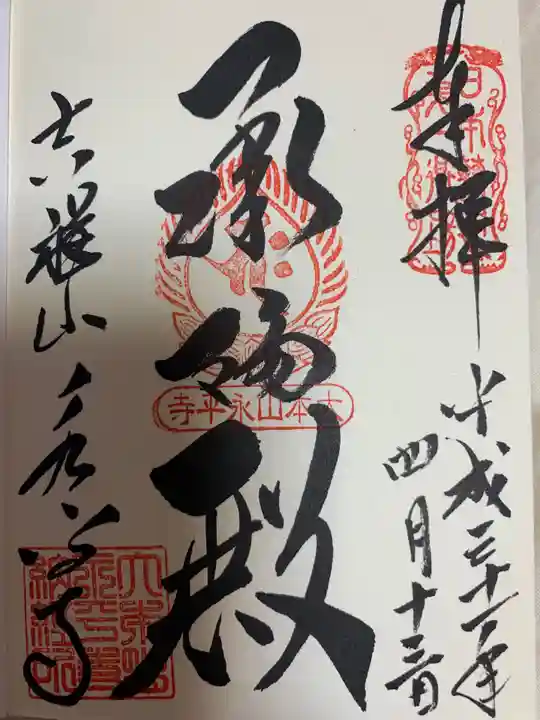 奉拝
平成三十一年
四月十三日
承陽殿
大本山永平寺
吉祥山
永平寺